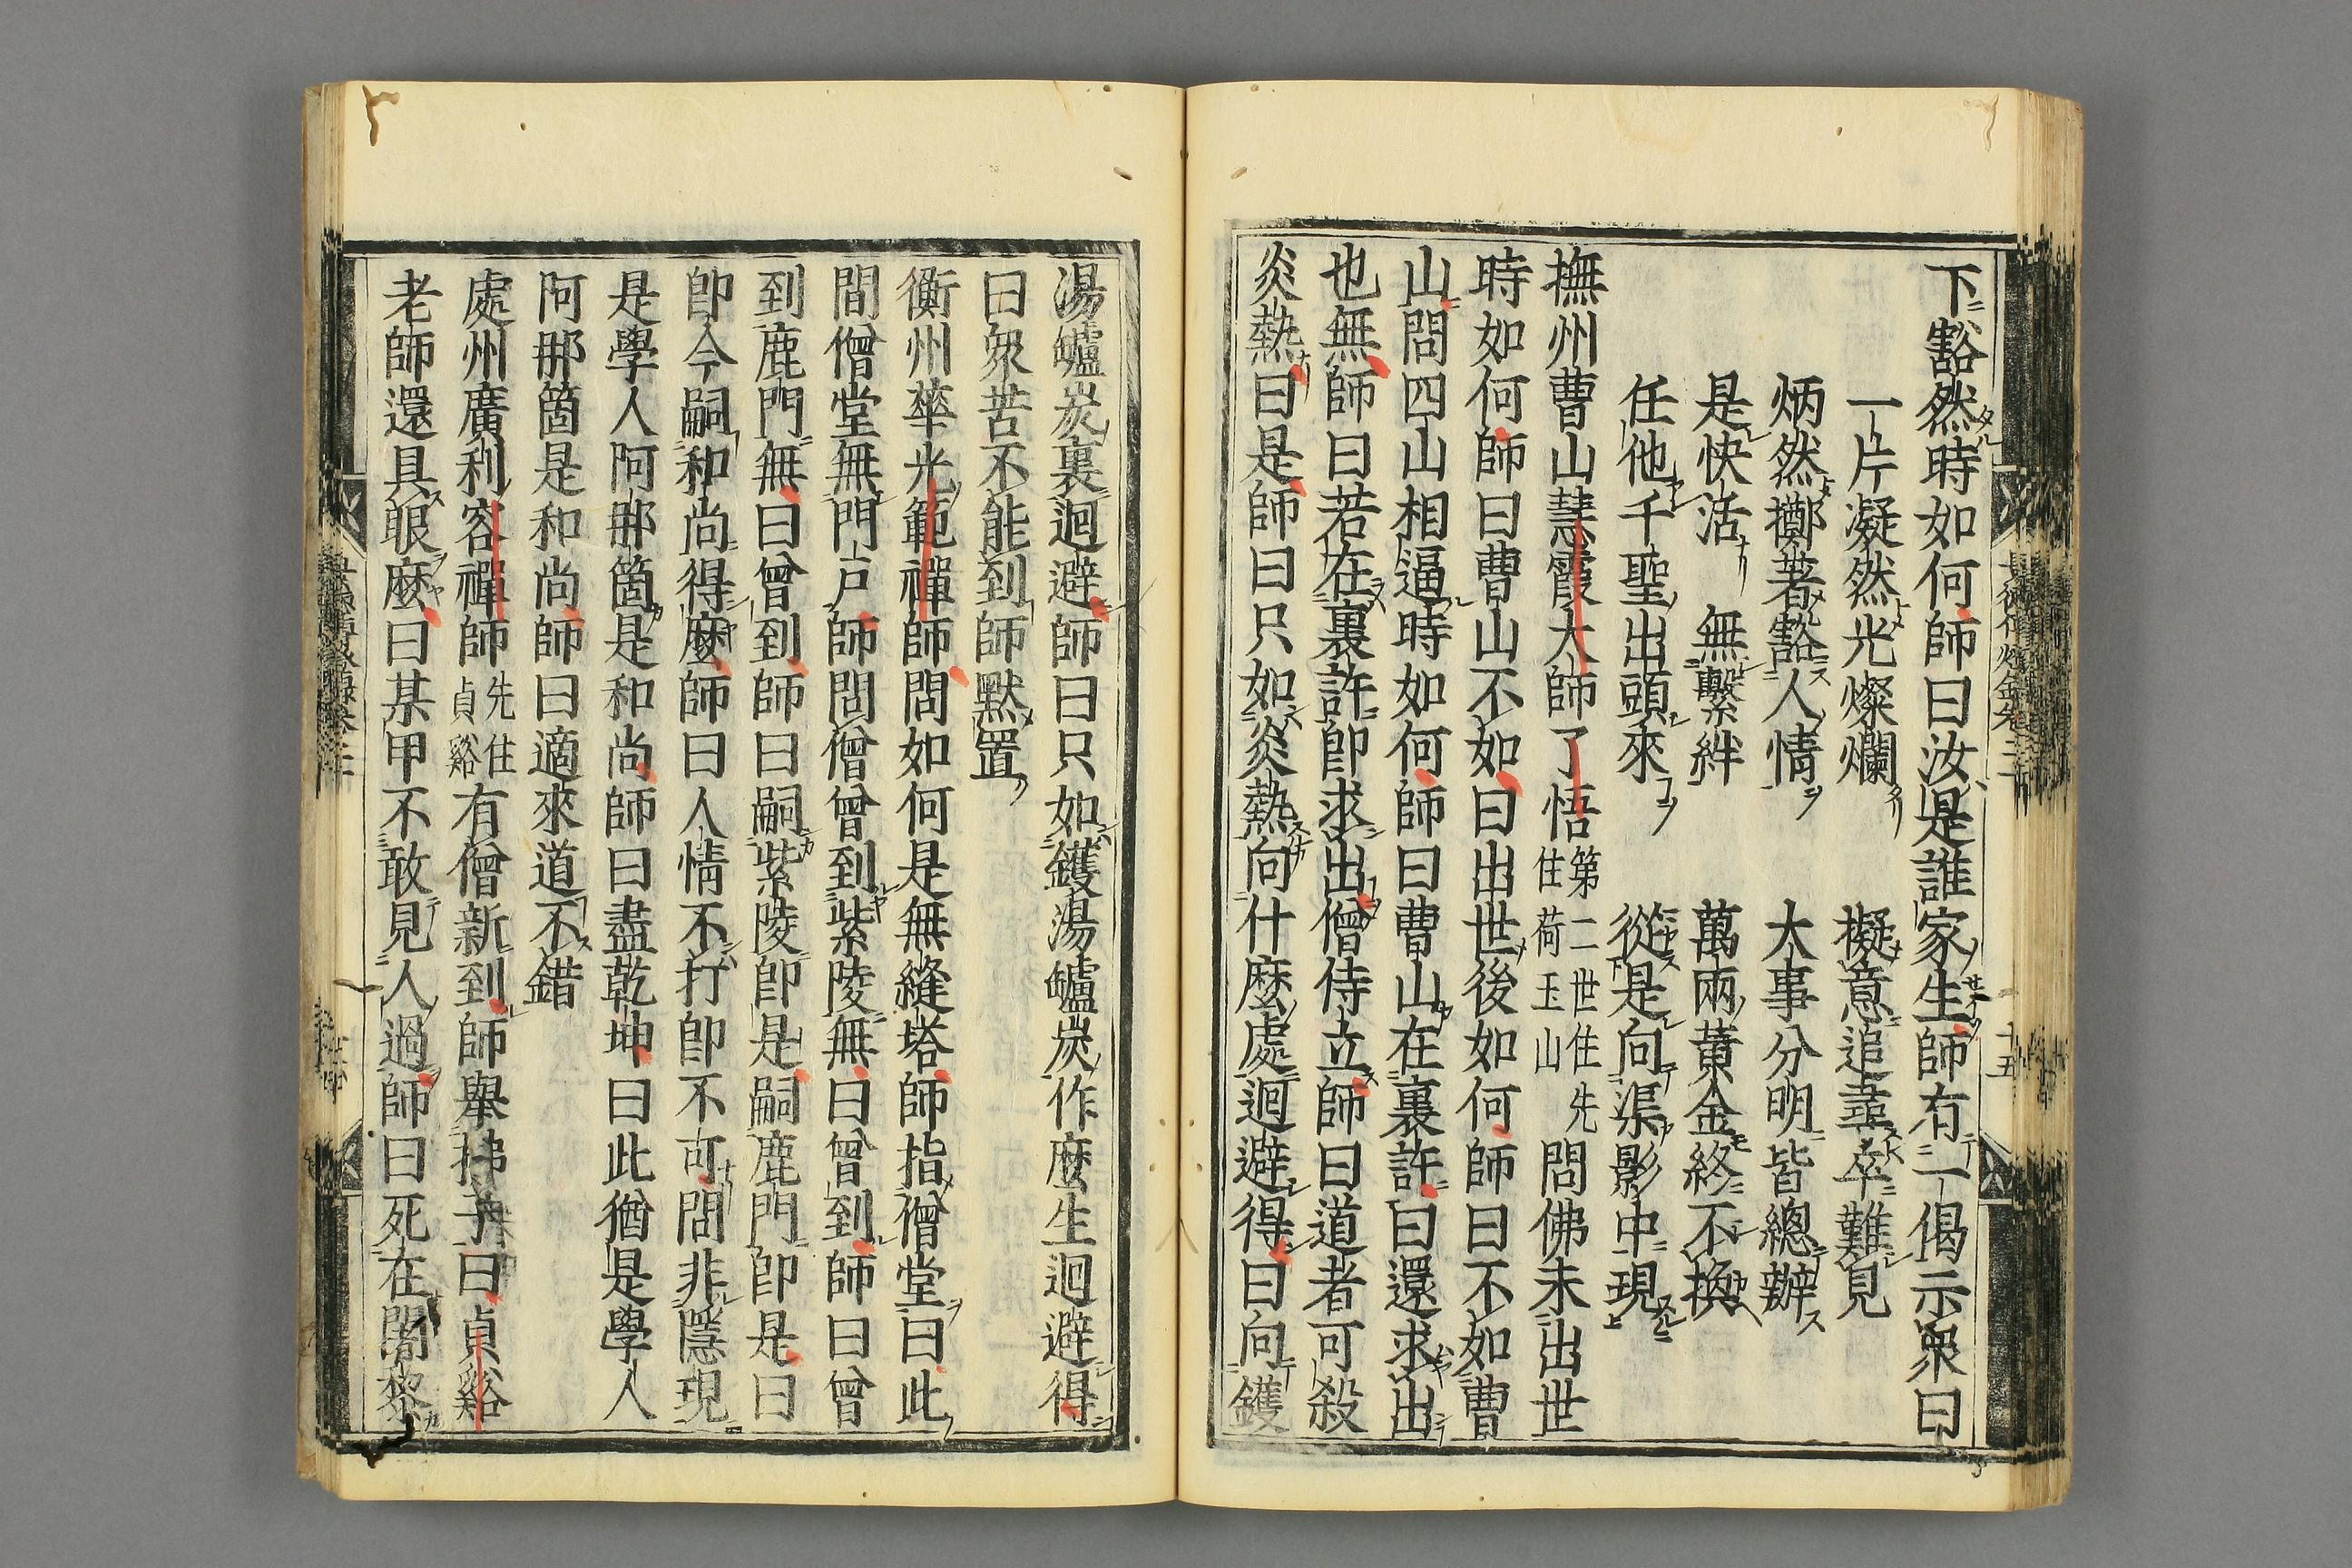 下豁然時如何師曰汝是誰家生師有一偈示衆曰
一片凝然光燦爛　擬意追尋卒難見
炳然擲著豁人情　大事分明皆總辦
是快活　無繫絆　萬兩黃金終不換
任他千聖出頭來　從是向渠影中現
撫州曹山慧霞大師了悟第二世住先住荷玉山問佛未出世
時如何師曰曹山不如曰出世後如何師曰不如曹
山問四山相逼時如何師曰曹山在裏許曰還求出
也無師曰若在裏許即求出僧侍立師曰道者可殺
炎熱曰是師曰只如炎熱向什麼處迴避得曰向鑊
湯鑪炭裏迴避師曰只如鑊湯鑪炭作麼生迴避得
曰衆苦不能到師默置
衡州華光範禪師問如何是無縫塔師指僧堂曰此
間僧堂無門戶師問僧曾到紫陵無曰曾到師曰曾
到鹿門無曰曾到師曰嗣紫陵即是嗣鹿門即是曰
即今嗣和尚得麼師曰人情不打即不可問非隱現
是學人阿那箇是和尚師曰盡乾坤曰此猶是學人
阿那箇是和尚師曰適來道不錯
處州廣利容禪師先住貞谿有僧新到師舉拂子曰貞谿
老師還具眼麼曰某甲不敢見人過師曰死在闍黎